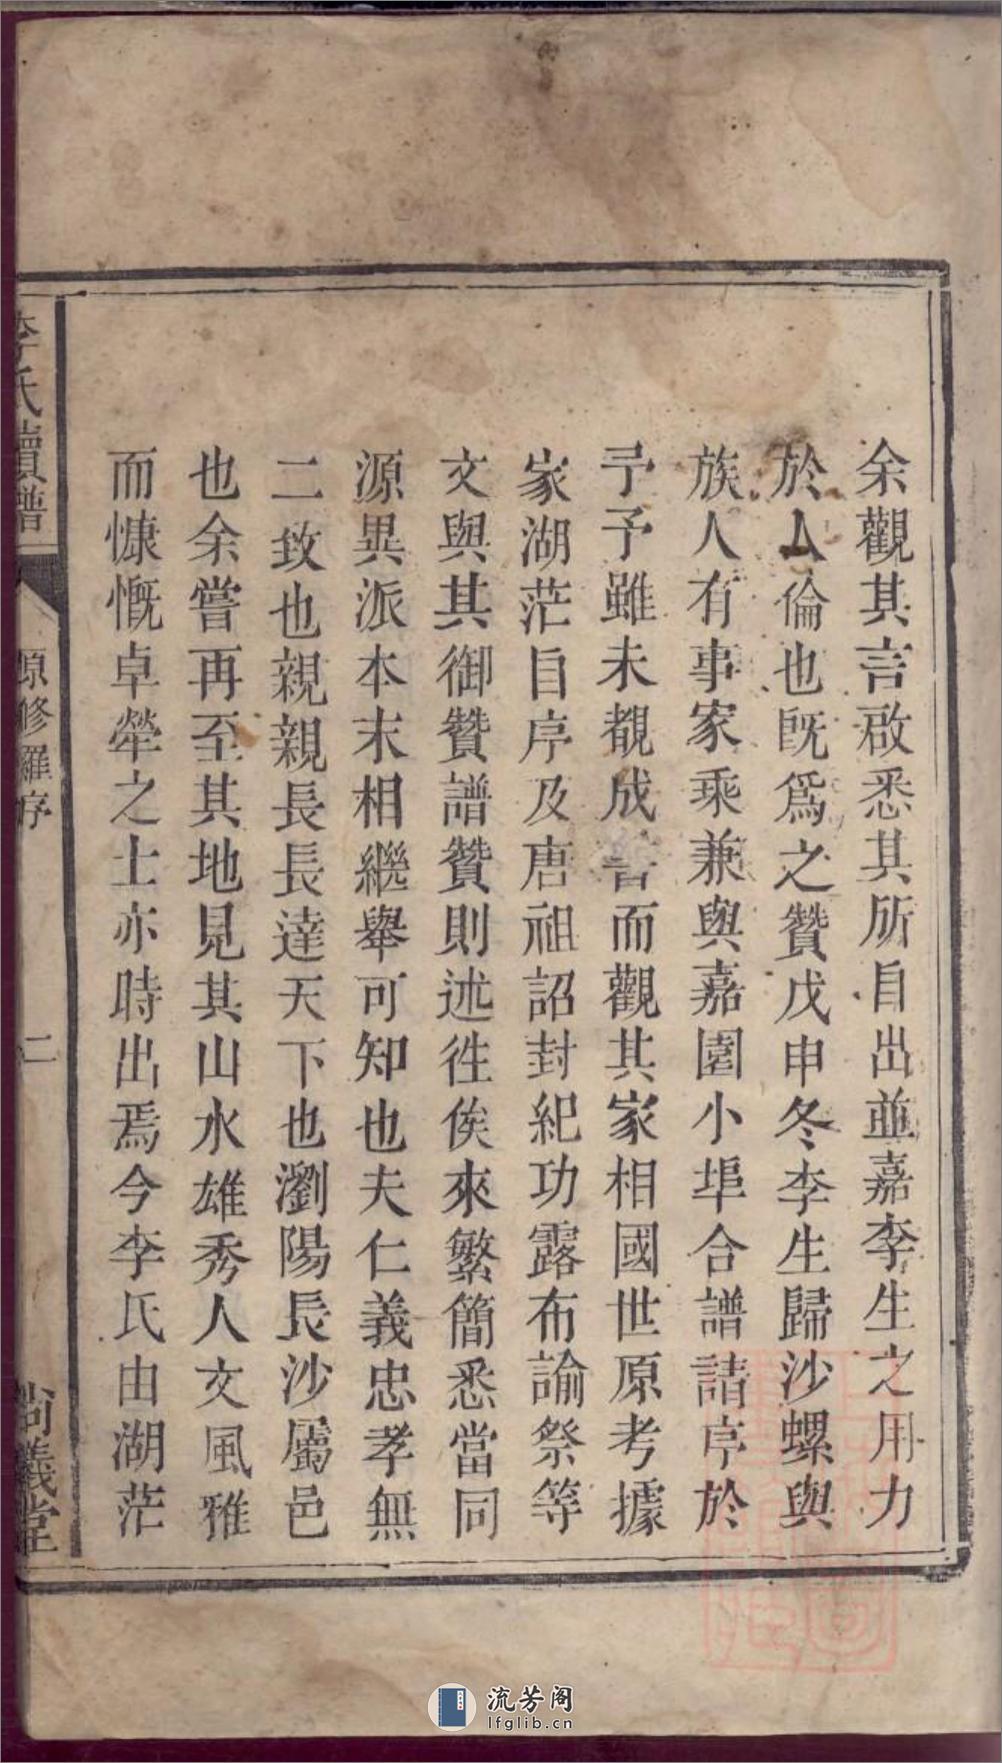 余觀其言啟悉其所自出並嘉李生之用力
於人倫也既爲之贊戊申冬李生歸沙螺與
族人有事家乘兼與嘉園小埠合譜請序於
予予雖未覩成書而觀其家相國世原考據
家湖茫自序及唐祖詔封紀功露布諭祭等
文與其御贊譜贊則述徃俟來繁簡悉當同
源異派本末相繼舉可知也夫仁義忠孝無
二致也親親長長達天下也瀏陽長沙屬邑
也余嘗再至其地見其山水雄秀人文風雅
而慷慨卓犖之士亦時出焉今李氏由湖茫
李氏續譜
原修羅序
二
尚義堂
流芳阁
lfglib.cn